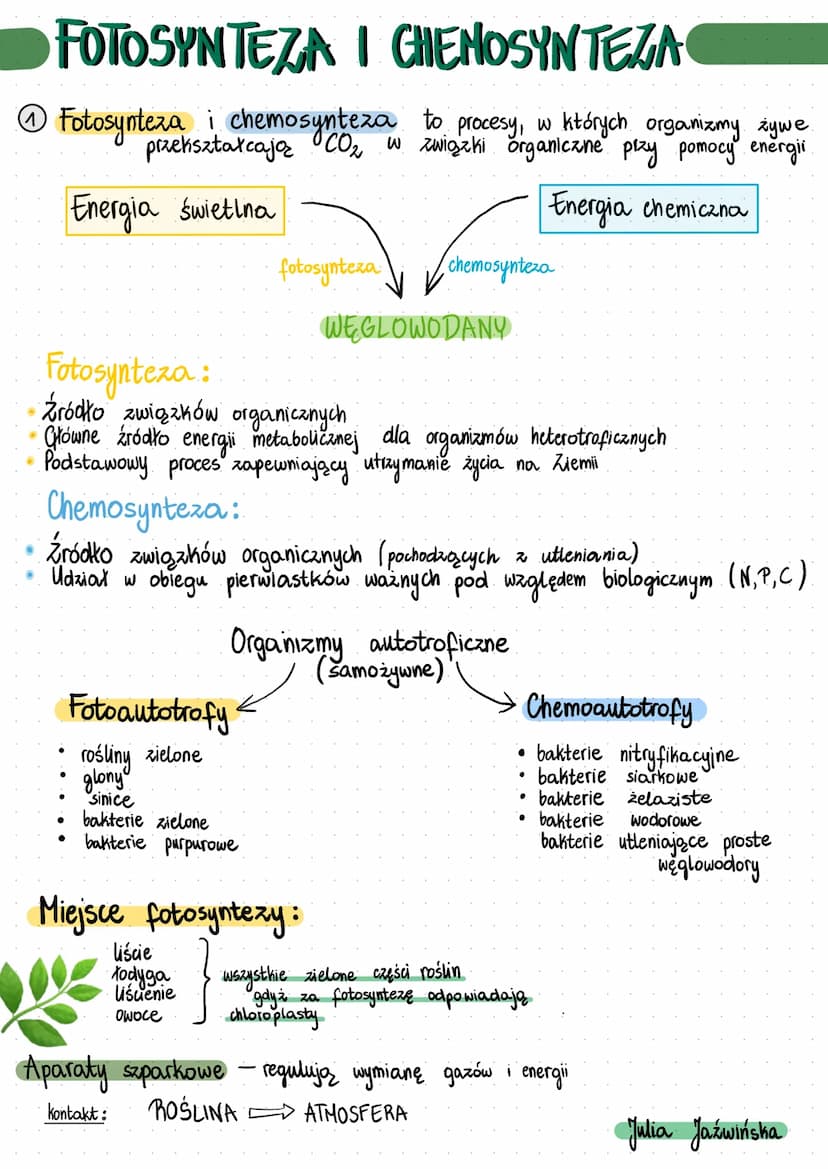 FOTOSYNTEZA I CHEMOSYNTEZA
1 Fotosynteza i chemosynteza to procesy, w których organizmy żywe
przekształcają CO₂ w związki organiczne przy pomocy energii
Energia świetlna
Energia chemiczna
fotosynteza
chemosynteza
WĘGLOWODANY
Fotosynteza:
• Źródło związków organicznych
• Główne źródło energii metabolicznej dla organizmów heterotroficznych
• Podstawowy proces zapewniający utrzymanie życia na Ziemii
Chemosynteza:
• Źródło związków organicznych (pochodzących z utleniania)
• Udział w obiegu pierwiastków ważnych pod względem biologicznym (N,P,C)
Organizmy autotroficzne
(samożywne)
Fotoautotrofy
• rośliny zielone
• glony
• sinice
• bakterie zielone
• bakterie purpurowe
Chemoautotrofy
• bakterie nitryfikacyjne
• bakterie siarkowe
• bakterie żelaziste
• bakterie wodorowe
bakterie utleniające proste
węglowodory
Miejsce fotosyntezy:
liście
łodyga
liścienie
owoce
wszystkie zielone części roślin
gdyż za fotosyntezę odpowiadają
chloroplasty
Aparaty szparkowe – regulują wymianę gazów i energii
kontakt: ROŚLINA ⇨ ATMOSFERA
Julia Jaźwińska